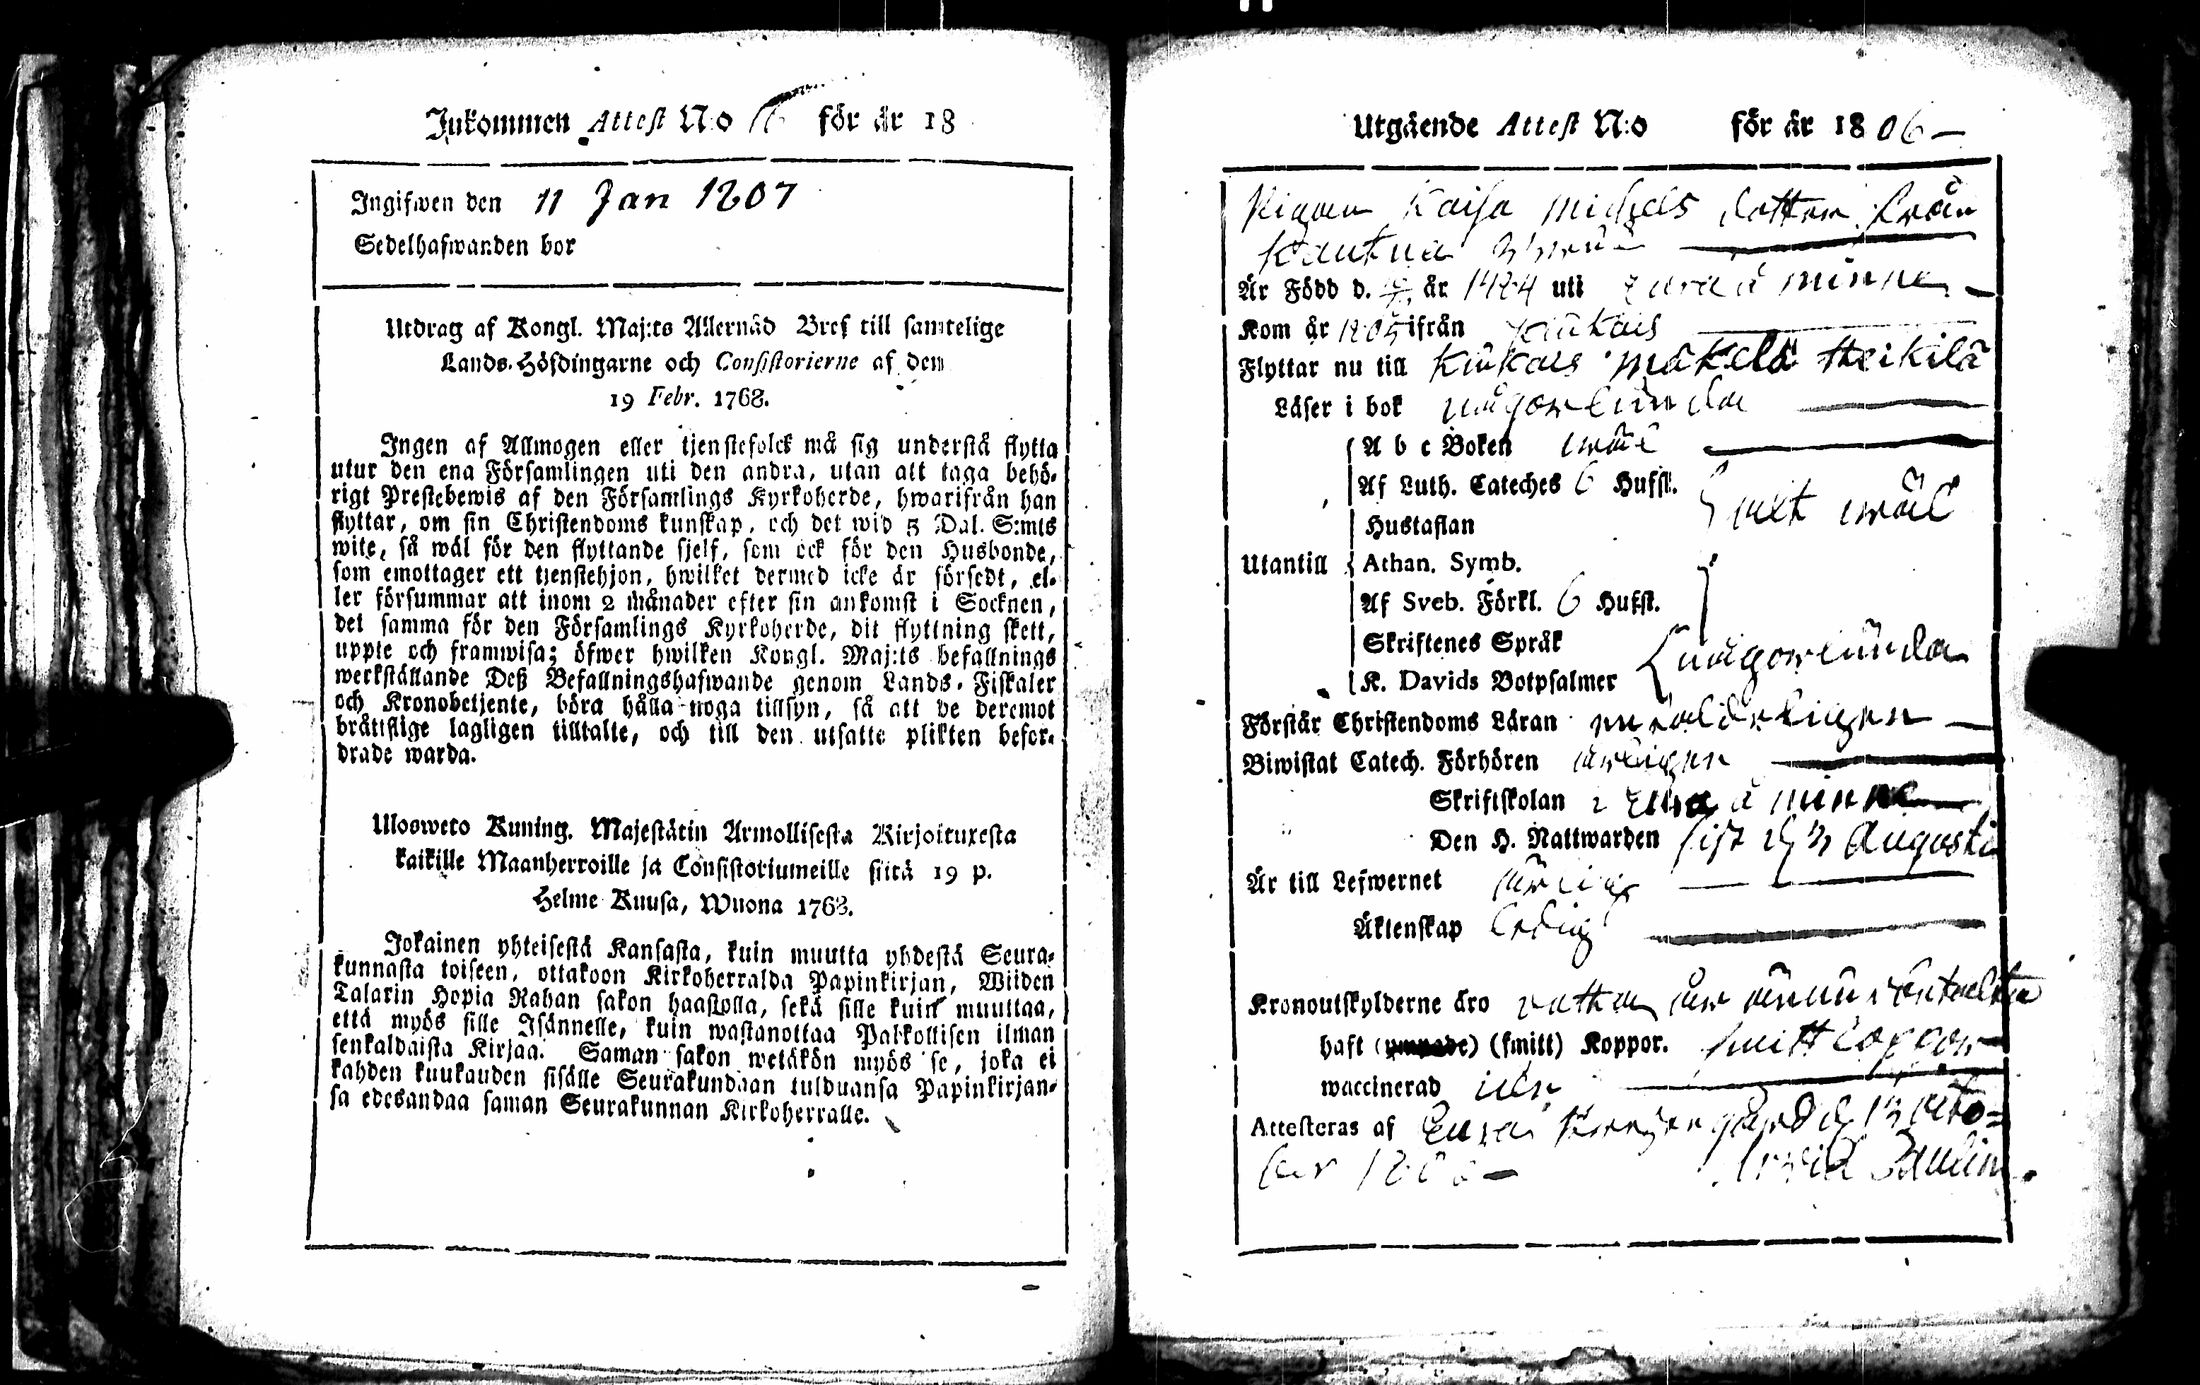 Inkommen Attest N:o 16 för år 18
Ingifwen den 11 Jan 1807
Sedelhafwanden bor
Utdrag af Kongl. Maj:ts Allernåd Bref till samtelige
Lands-Höfdingarne och Consistorierne af den
19 Febr. 1768.
Ingen af Allmogen eller tjenstefolck må sig understå flytta
utur den ena Församlingen uti den andra, utan att taga behö-
rigt Prestebewis af den Församlings Kyrkoherde, hwarifrån han
flyttar, om sin Christendoms kunskap, och det wid 5 Dal. S:mts
wite, så wäl för den flyttande sjelf, som ock för den Husbonde,
som emottager ett tjenstehjon, hwilket dermed icke är försedt, el-
ler försummar att inom 2 månader efter sin ankomst i Socknen,
det samma för den Församlings Kyrkoherde, dit flyttning skett,
uppte och framwisa; öfwer hwilken Kongl. Maj:ts befallnings
werkställande Deß Befallningshafwande genom Lands-Fiskaler
och Kronobetjente, böra hålla noga tillsyn, så att de deremot
bråttslige lagligen tilltalte, och till den utsatte plikten befor-
drade warda.
Ulosweto Kuning. Majestätin Armollisesta Kirjoituxesta
kaikille Maanherroille ja Consistoriumeille siitä 19 p.
Helme Kuusa, Wuona 1768.
Jokainen yhteisestä Kansasta, kuin muutta yhdestä Seura-
kunnasta toiseen, ottakoon Kirkoherralda Papinkirjan, Wiiden
Talarin Hopia Rahan sakon haastolla, sekä sille kuin muuttaa,
että myös sille Isännelle, kuin wastanottaa Palkollisen ilman
senkaldaista Kirjaa. Saman sakon wetäkön myös se, joka ei
kahden kuukauden sisälle Seurakundaan tulduansa Papinkirjan-
sa edesandaa saman Seurakunnan Kirkoherralle.
Utgående Attest N:o för år 1806
Pigan Kaisa Michels dotter från
Kautua
Är Född d. år 1784 uti Eura å minne
Kom år 1805 ifrån Kiukais
Flyttar nu till Kiukais Mäkelä Heikilä
Läser i bok någorlunda
A b c Boken wäl
Af Luth. Cateches 6 Hufst. wäl
Hustaflan
Utantill Athan. Symb.
Af Sveb. Förkl. 6 Hufst.
Skriftenes Språk någorlunda
K. Davids Botpsalmer
Förstår Christendoms Läran
Biwistat Catech. Förhören årligen
Skriftskolan i Eura å minne
Den H. Nattwarden sist d 3 Augusti
Är till Lefwernet ärlig
Äktenskap ledig
Kronoutskylderne äro
haft (ympade) (smitt) Koppor. smitt coppor
waccinerad
Attesteras af Eura d 13 octo-
ber 1806 Arvid Paulin